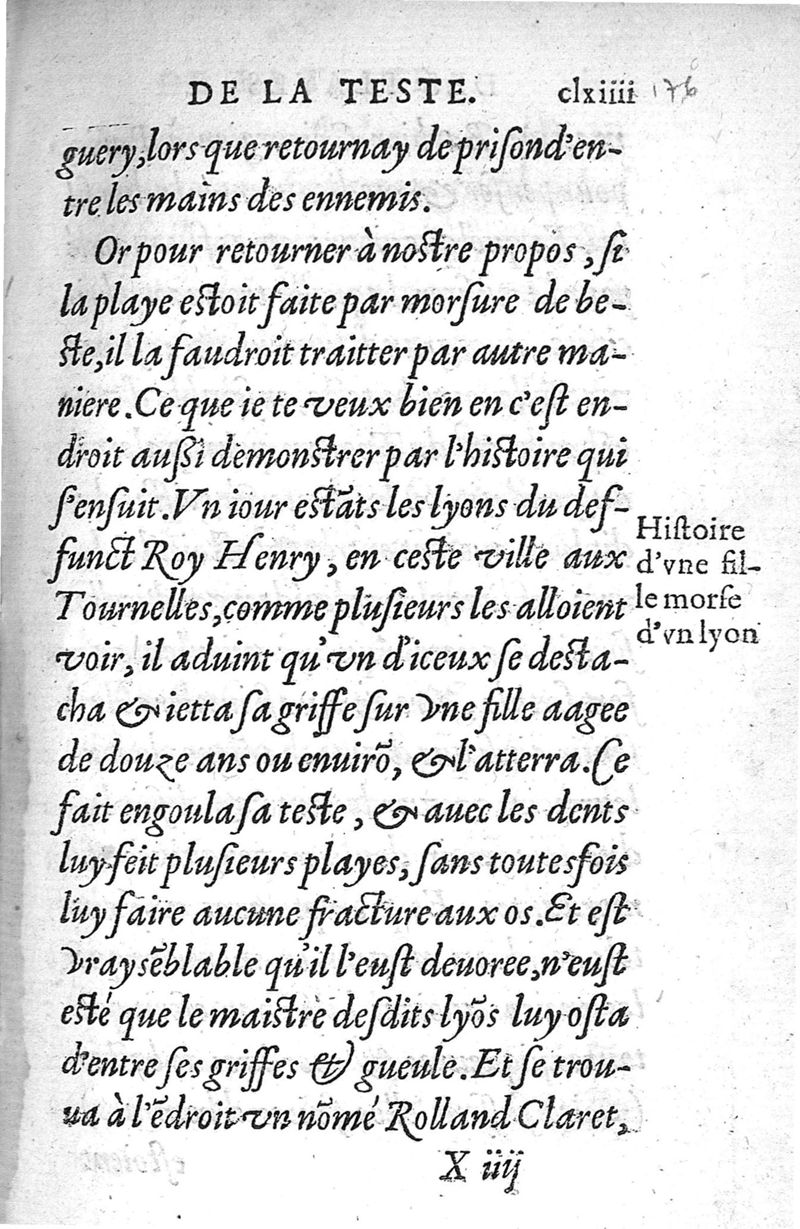 DE LA TESTE. clxiiii 176
guery, lors que retournay de priſon d'en-
tre les mains des ennemis.
Or pour retourner à noſtre propos, ſi
la playe eſtoit faite par morſure de be-
ſte, il la faudroit traitter par autre ma-
niere. Ce que ie te veux bien en c'eſt en-
droit auſſi demonſtrer par l'hiſtoire qui
ſ'enſuit. Vn iour eſtāts les lyons du def-
funct Roy Henry, en ceſte ville aux
Tournelles, comme pluſieurs les alloient
voir, il aduint qu'vn d'iceux ſe deſta-
cha & ietta ſa griffe ſur vne fille aagee
de douze ans ou enuirō, & l'atterra. Ce
fait engoula ſa teſte, & auec les dents
luy feit pluſieurs playes, ſans toutesfois
luy faire aucune fracture aux os. Et eſt
vray sēblable qu'il l'euſt deuoree, n'euſt
eſté que le maiſtre deſdits lyōs luy oſta
d'entre ſes griffes & gueule. Et ſe trou-
ua à l'ēdroit vn nōmé Rolland Claret,
X iiij
Hiſtoire
d'vne fil-
le morſe
d'vn lyon